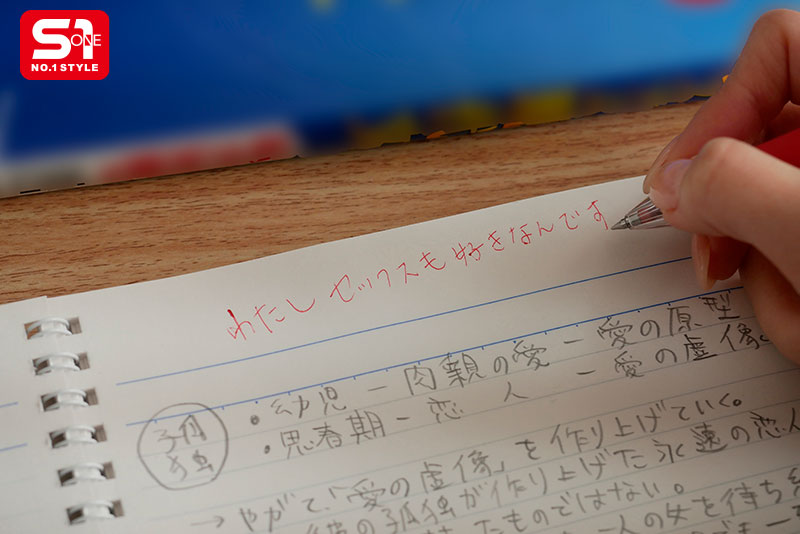 S1 ONE
NO.1 STYLE
わたし セックスも 好きなんです
・幼児 － 肉親の愛 － 愛の原型
孤独
・思春期 － 恋 人 － 愛の虚像
→ やがて「愛の虚像」を作り上げていく。
の孤独が作り上げた永遠の恋人
たものではない。
一人の女を待ち